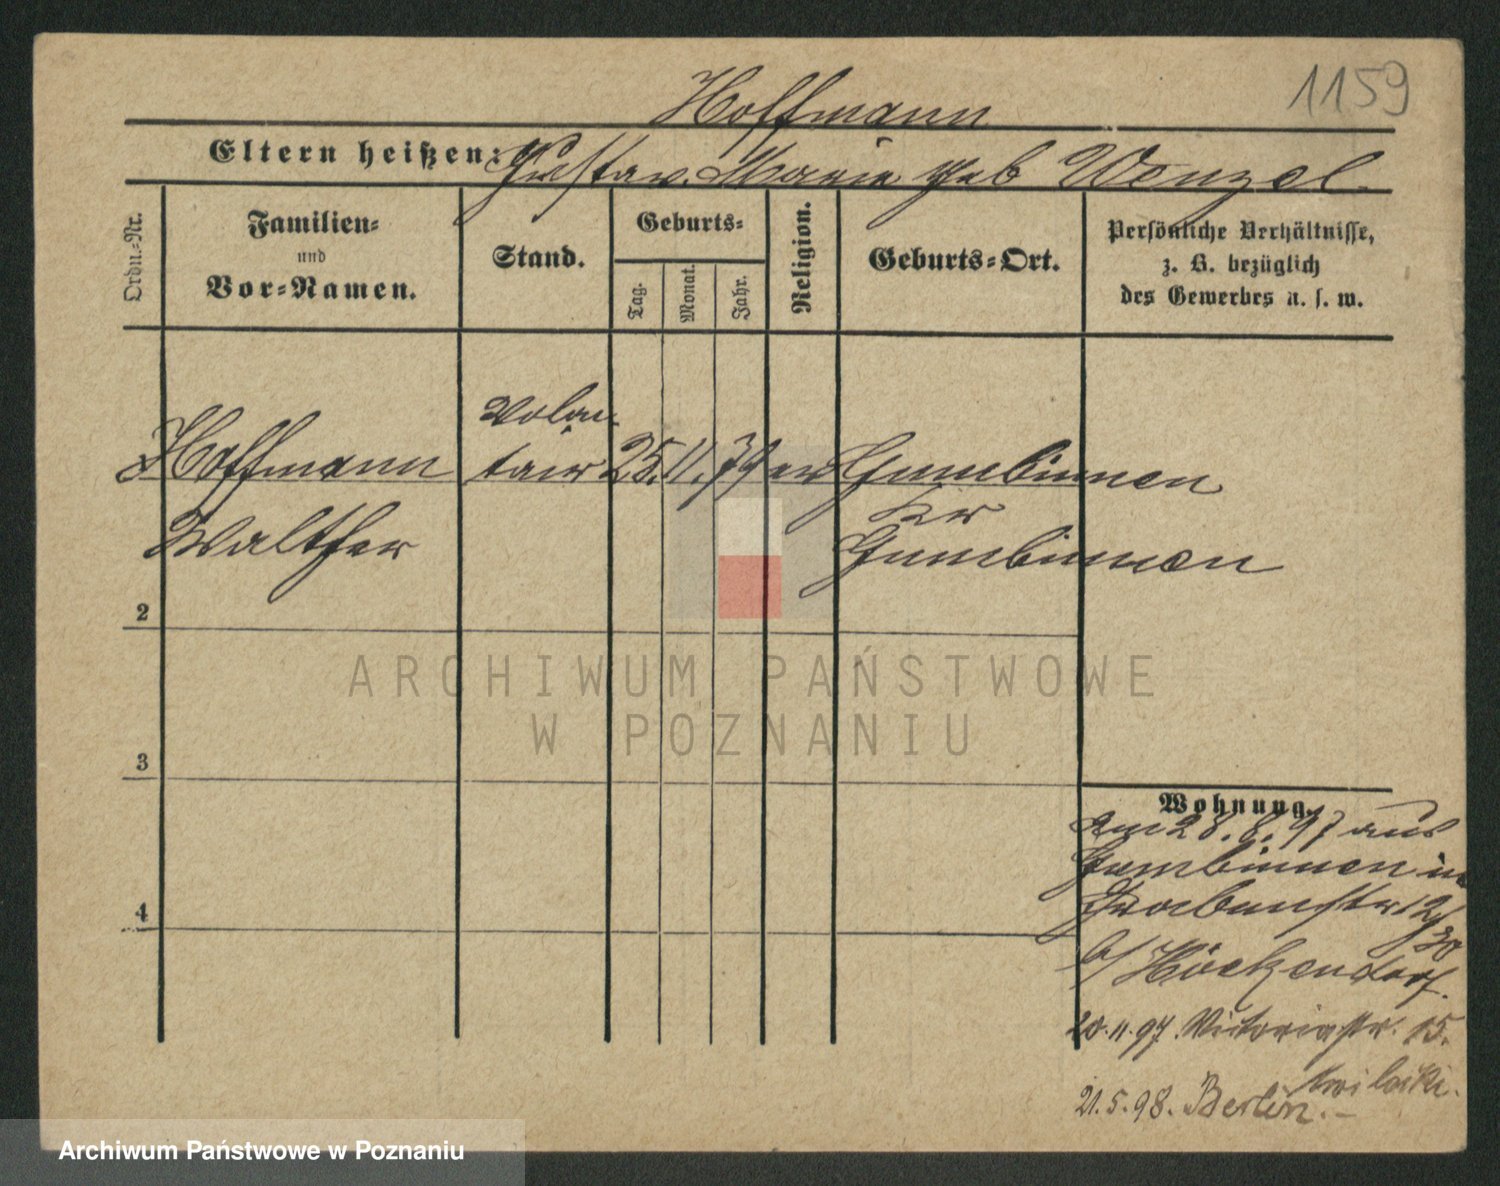 1159
Hoffmann
Eltern heißen: Gustav. Marie geb Wenzel.
Ordn.-Nr.
Familien-
und
Vor-Namen.
Stand.
Geburts-
Tag.
Monat.
Jahr.
Religion.
Geburts-Ort.
Persönliche Verhältnisse,
z. B. bezüglich
des Gewerbes u. s. w.
Hoffmann
Walther
Volon-
tair
25. 11. 79 ev
Gumbinnen
Kr
Gumbinnen
2
3
4
ARCHIWUM PAŃSTWOWE
W POZNANIU
Wohnung.
am 28. 8. 97 aus
Gumbinnen in
Grabenstr 12
b/ Höckendorf.
20.11.97. Victoriastr. 15.
21.5.98. Berlin.
Archiwum Państwowe w Poznaniu